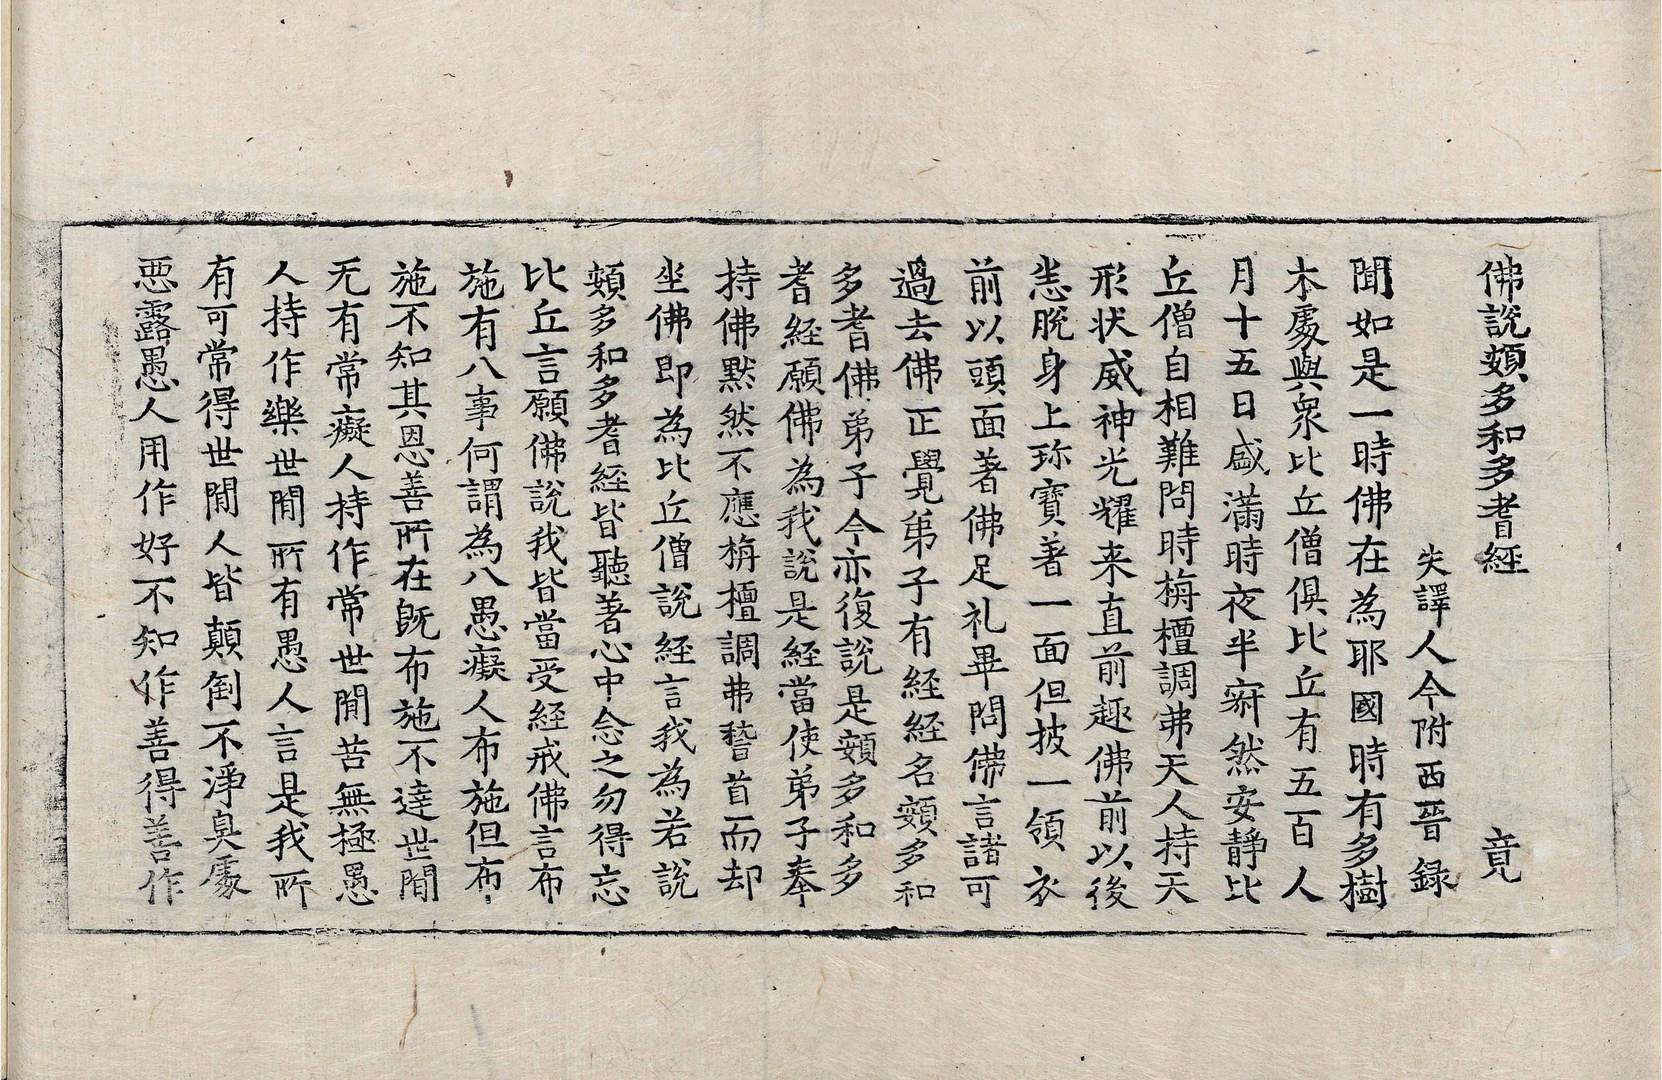 佛說頞多和多耆經 竟
失譯人今附西晉錄
聞如是一時佛在為耶國時有多樹
本處與衆比丘僧俱比丘有五百人
月十五日盛滿時夜半寂然安靜比
丘僧自相難問時栴檀調弗天人持天
形狀威神光耀来直前趣佛前以後
恙脫身上珎寶著一面但披一領衣
前以頭面著佛足礼畢問佛言諸可
過去佛正覺弟子有經經名頞多和
多耆佛弟子今亦復說是頞多和多
耆經願佛為我說是經當使弟子奉
持佛默然不應栴檀調弗稽首而却
坐佛即為比丘僧說經言我為若說
頞多和多耆經皆聽著心中念之勿得忘
比丘言願佛說我皆當受經戒佛言布
施有八事何謂為八愚癡人布施但布
施不知其恩善所在旣布施不達世間
无有常癡人持作常世間苦無極愚
人持作樂世間所有愚人言是我所
有可常得世間人皆顛倒不淨臭處
惡露愚人用作好不知作善得善作